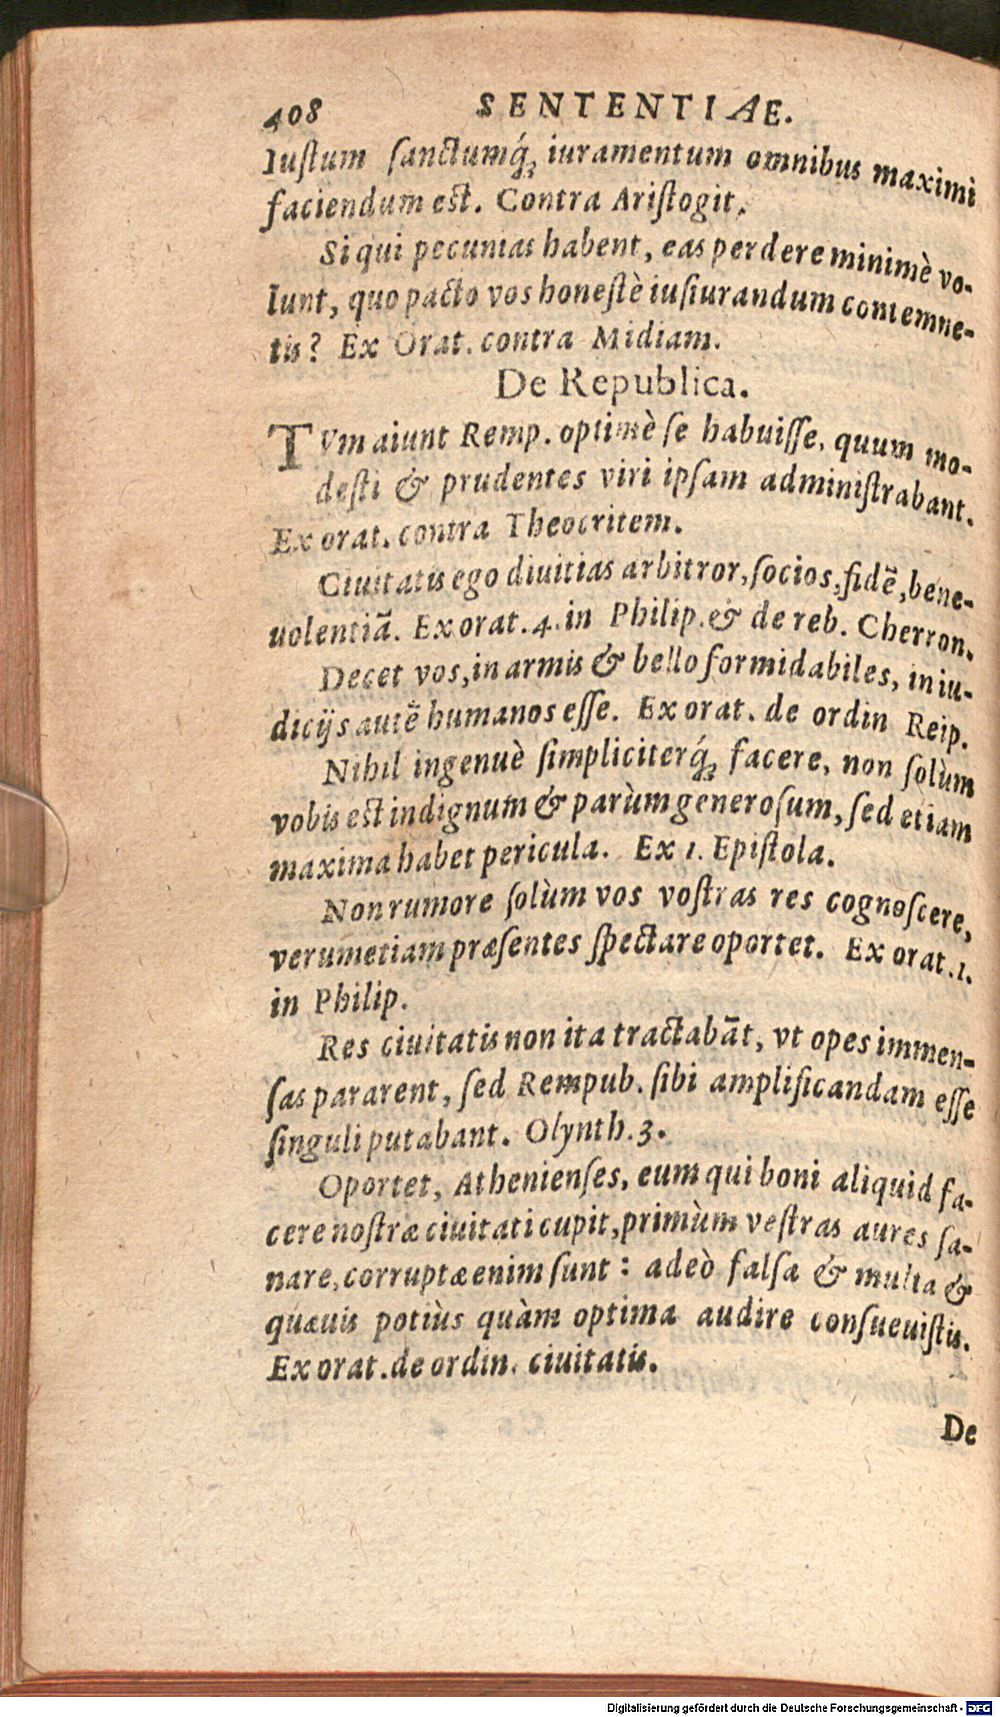 408 SENTENTIAE.
Iuſtum ſanctumq́; iuramentum omnibus maximi
faciendum est. Contra Ariſtogit.
Si qui pecunias habent, eas perdere minimè vo-
lunt, quo pacto vos honeſtè iuſiurandum contemne-
tis? Ex Orat. contra Midiam.
De Republica.
TVm aiunt Remp. optimè ſe habuiſſe, quum mo-
deſti & prudentes viri ipſam adminiſtrabant.
Ex orat. contra Theocritem.
Ciuitatis ego diuitias arbitror, ſocios, fidē, bene-
uolentiā. Ex orat. 4. in Philip. & de reb. Cherron.
Decet vos, in armis & bello formidabiles, in iu-
dicijs autē humanos eſſe. Ex orat. de ordin Reip.
Nihil ingenuè ſimpliciterq́; facere, non ſolùm
vobis est indignum & parùm generoſum, ſed etiam
maxima habet pericula. Ex 1. Epiſtola.
Non rumore ſolùm vos voſtras res cognoſcere,
verumetiam præſentes ſpectare oportet. Ex orat. 1.
in Philip.
Res ciuitatis non ita tractabāt, vt opes immen-
ſas pararent, ſed Rempub. ſibi amplificandam eſſe
ſinguli putabant. Olynth. 3.
Oportet, Athenienſes, eum qui boni aliquid fa-
cere noſtræ ciuitati cupit, primùm veſtras aures ſa-
nare, corruptæ enim ſunt : adeò falſa & multa &
quæuis potiùs quàm optima audire conſueuiſtis.
Ex orat. de ordin. ciuitatis.
De
Digitalisierung gefördert durch die Deutsche Forschungsgemeinschaft - DFG